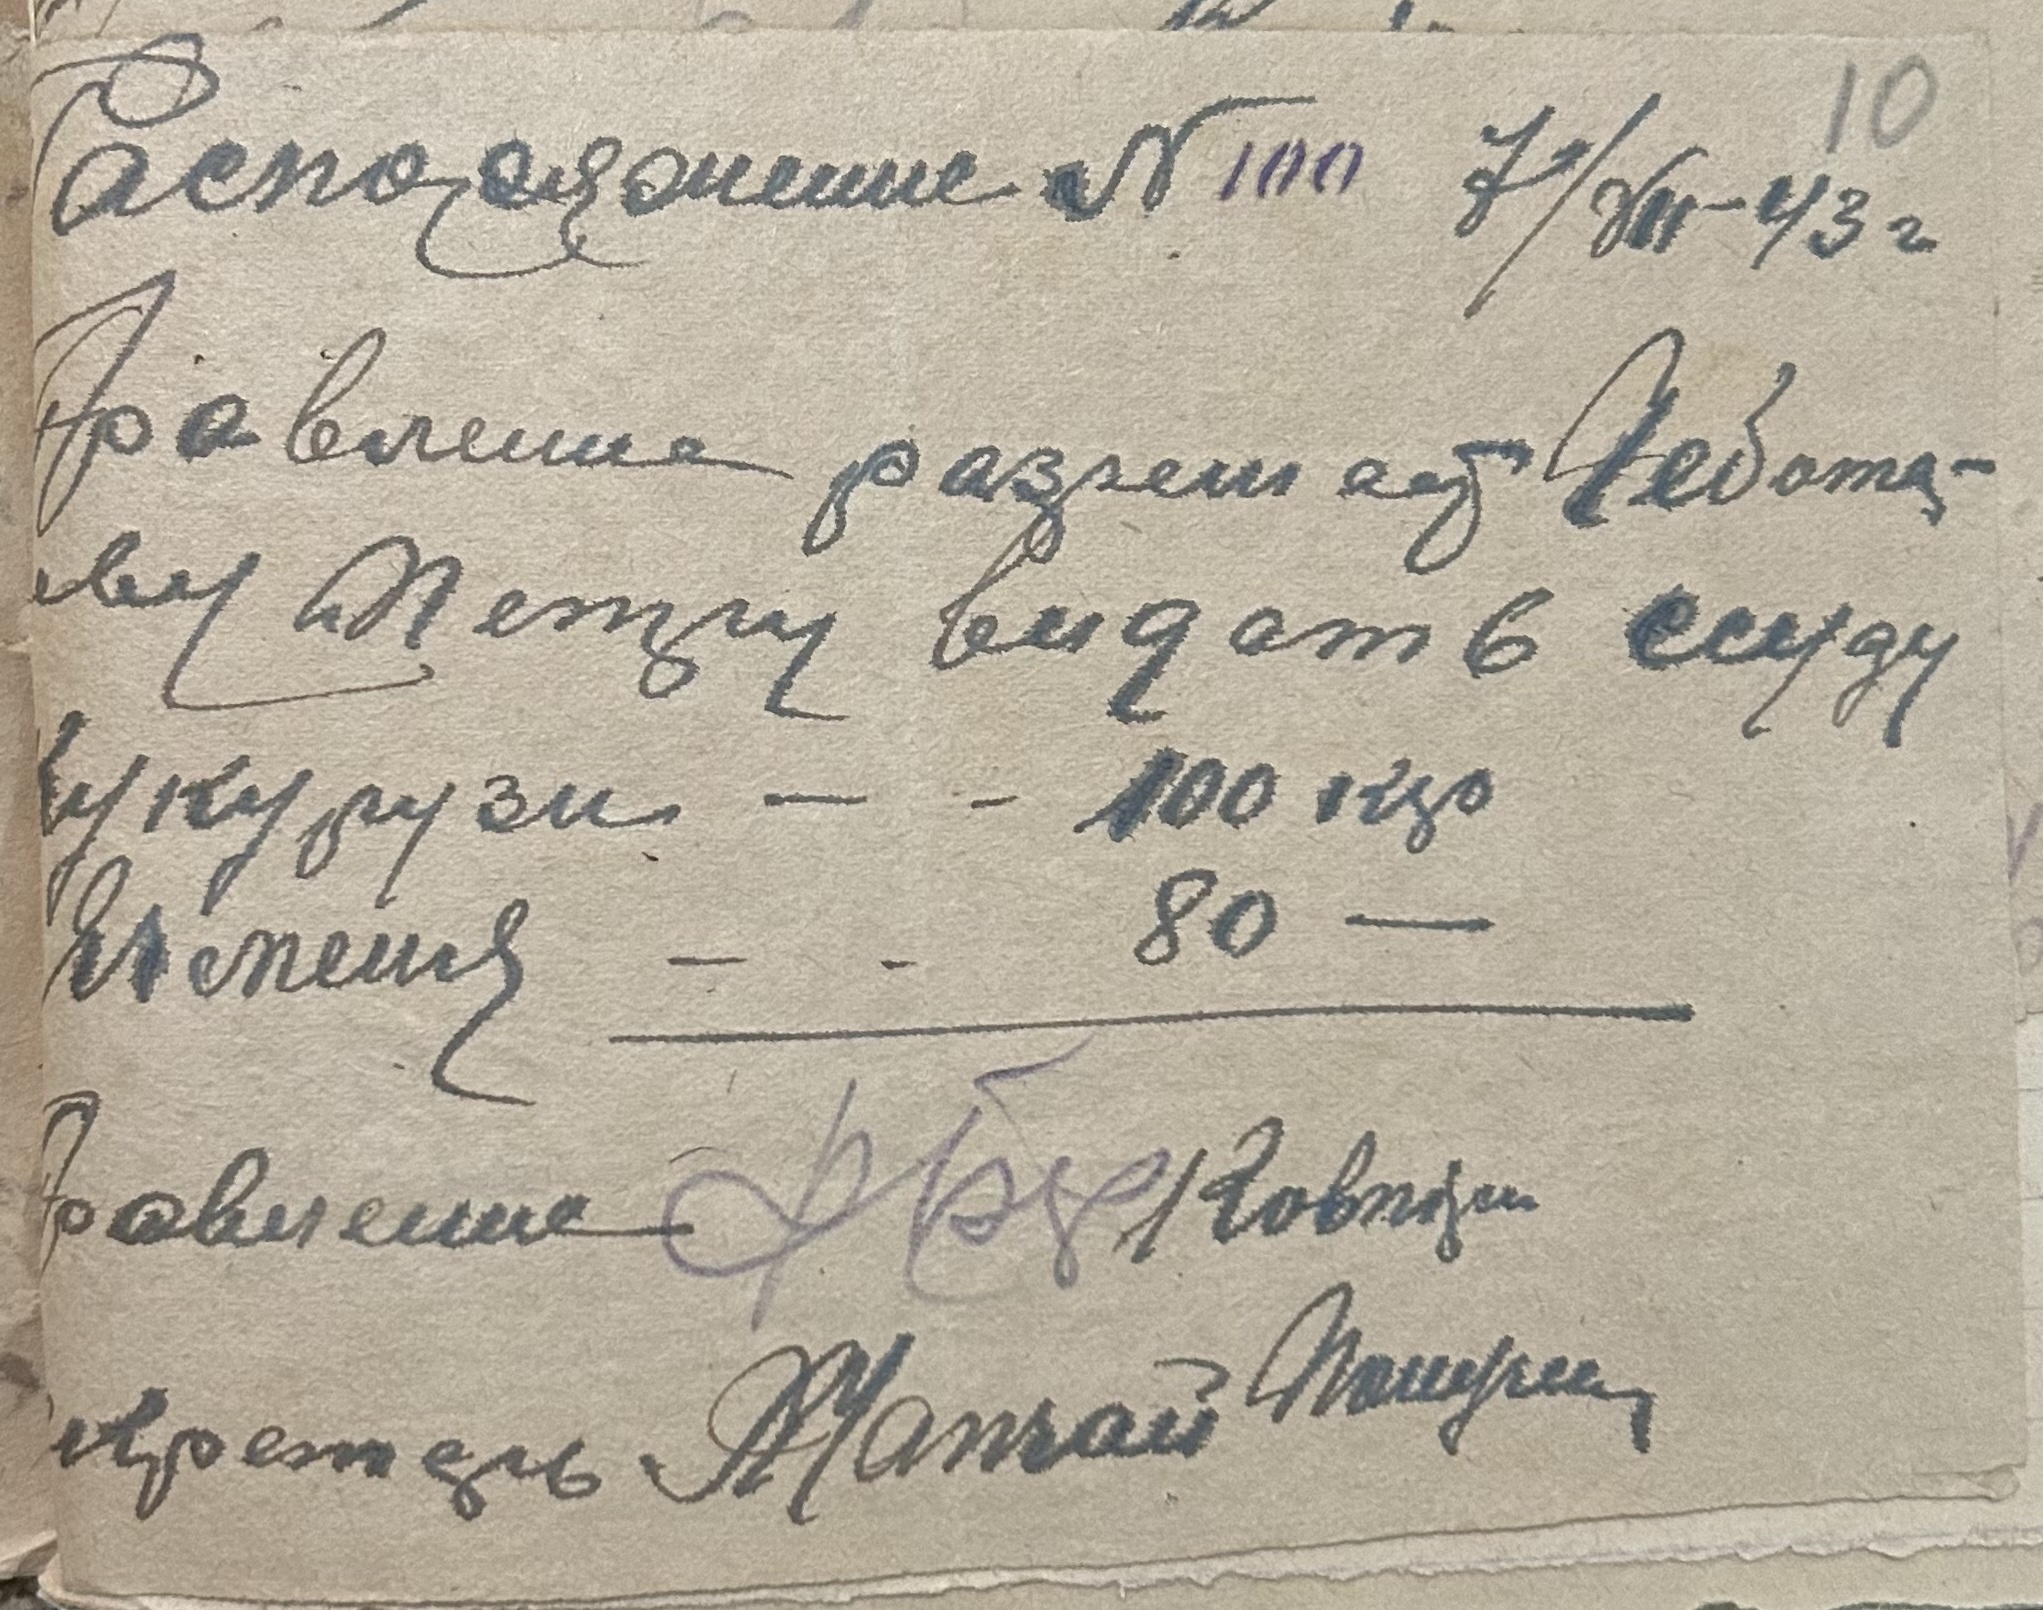 10
Распоряжение N 100 7/VII-43 г
Правление разрешает Чебота-
еву Петру видать ссуду
кукурузи - - 100 кгр
Ячменя - - 80 —
Правление
кретарь